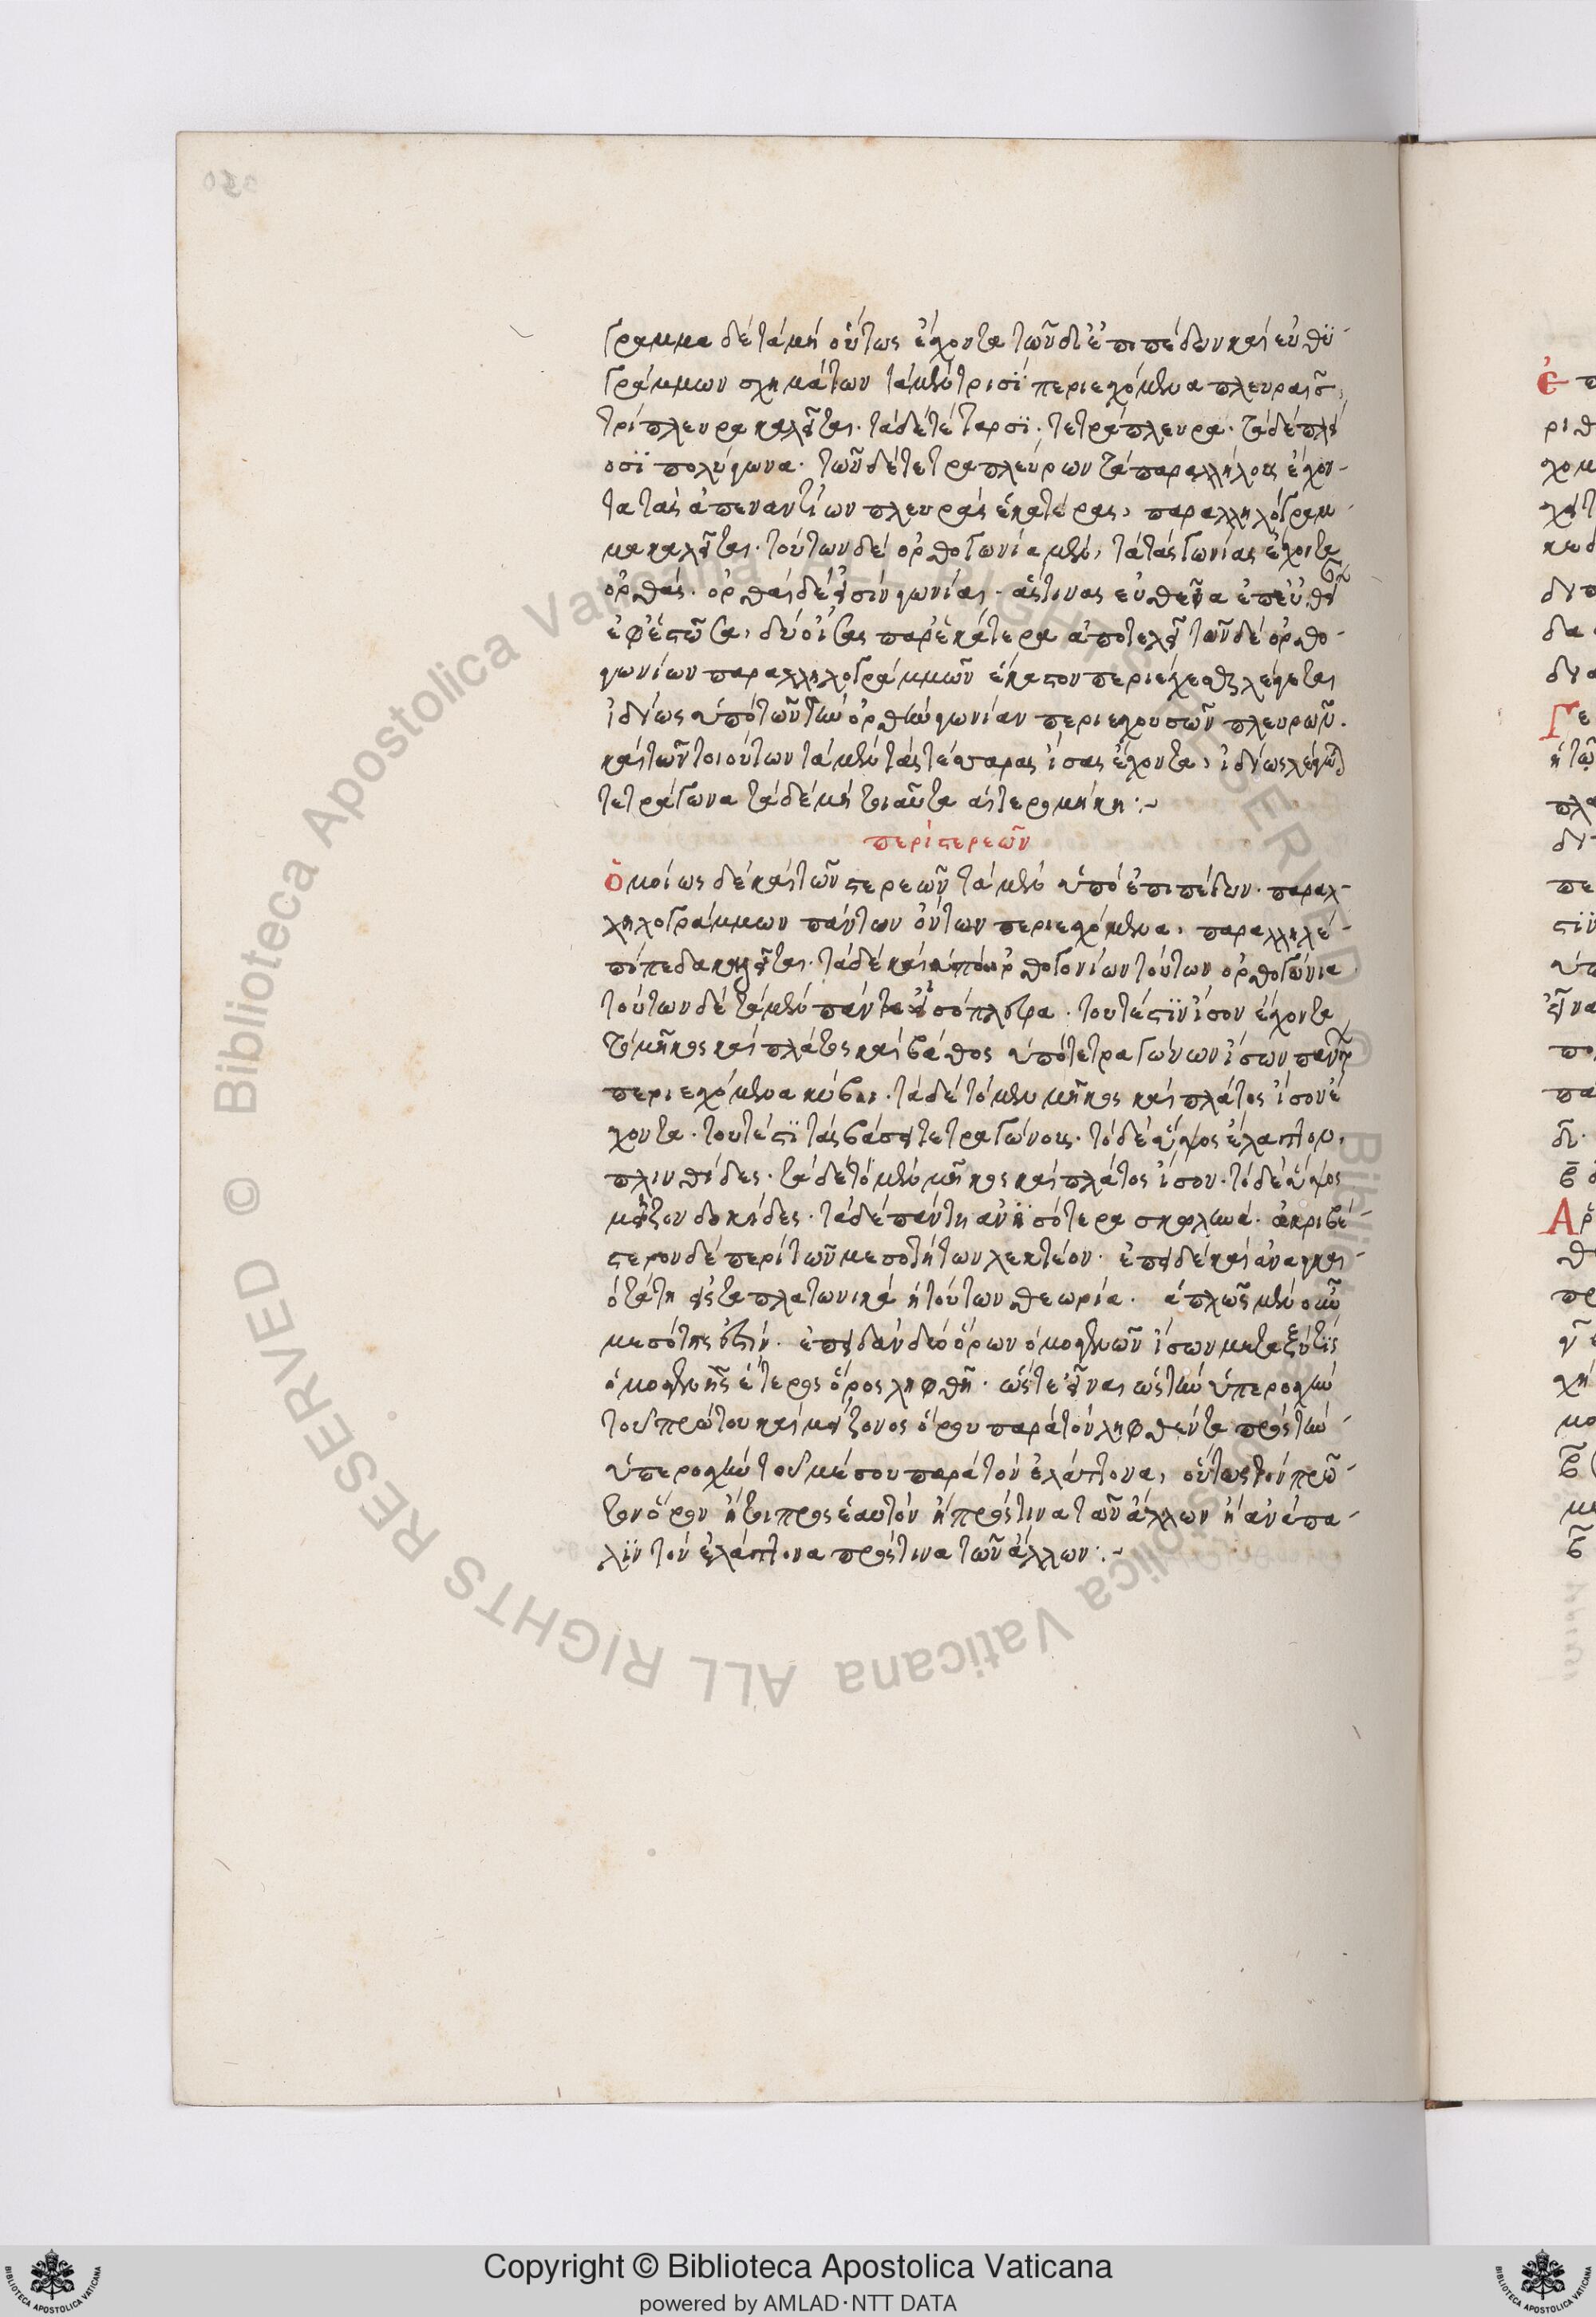 γραμμα δὲ τὰ μὴ οὕτως ἔχοντα τῶν δὲ ἐπιπέδων καὶ εὐθϋ-
γράμμων σχημάτων τὰ μὲν τρισῒ περιεχόμενα πλευραῖς,
τρίπλευρα καλεῖται. τὰ δὲ τέταρσϊ. τετράπλευρα. τὰ δὲ πλεί
οσϊ πολύγωνα. τῶν δὲ τετραπλεύρων τὰ παραλλήλους ἔχον-
τα τὰς ἀπεναντίων πλευρὰς ἑκατέρας, παραλληλόγραμ-
μα καλεῖται. τούτων δὲ ὀρθογωνία μὲν, τὰ τὰς γωνίας ἔχοντα
ὀρθάς. ὀρθαὶ δέ εἰσὶν γωνίαι. ἅστινας εὐθεῖα ἐπ' εὐθεῖ
ἐφεστῶσα, δύο ἴσας παρ' ἑκάτερα ἀποτελεῖ τῶν δὲ ὀρθο-
γωνίων παραλληλογράμμῶν ἕκαστον περιέχεσθαι λέγεται
ἰδίως ὑπὸ τῶν τὴν ὀρθὴν γωνίαν περιεχουσῶν πλευρῶν.
καὶ τῶν τοιούτων τὰ μὲν τὰς τέσσαρας ἴσας ἔχοντα, ἰδίως λέγεται
τετράγωνα τὰ δὲ μὴ τοιαῦτα αἱτερομήκη:~
περὶ στερεῶν
Ὁμοίως δὲ καὶ τῶν στερεῶν τὰ μὲν ὑπὸ ἐπιπέδων. παραλ-
ληλογράμμων πάντων ὄντων περιεχόμενα, παραλληλε-
πίπεδα καλεῖται. τὰ δὲ καὶ ὑπὸ ὀρθογονίων τούτων ὀρθογώνια
τούτων δὲ τὰ μὲν πάντα ἰσόπλευρα. τουτέστϊν ἴσον ἔχοντα
τὸ μῆκος καὶ πλάτος καὶ βάθος ὑπὸ τετραγώνων ἴσων πάντων
περιεχόμενα κύβοι. τὰ δὲ τὸ μὲν μῆκος καὶ πλάτος ἴσον ἔ
χοντα. τουτέστϊ τὰς βάσεις τετραγώνους. τὸ δὲ ὕψος ἔλαττον,
πλινθίδες. τὰ δὲ τὸ μὲν μῆκος καὶ πλάτος ἴσον. τὸ δὲ ὕψος
μεῖζον δοκίδες. τὰ δὲ πάντη ἀνϊσότερα σκαληνά. ἀκριβέ-
στερον δὲ περὶ τῶν μεσοτήτων λεκτέον. ἐπεὶ δὲ καὶ ἀναγκαι-
οτάτη εἰς τὰ πλατωνικὰ ἡ τούτων θεωρία. ἁπλῶς μὲν οὖν
μεσότης ἐστίν. ἐπειδὰν δύο ὅρων ὁμογενῶν ἴσων μεταξύ τϊς
ὁμογενὴς ἕτερος ὅρος ληφθῇ. ὥστε εἶναι ὡς τὴν ὑπεροχὴν
τοῦ πρώτου καὶ μείζονος ὅρου παρὰ τὸν ληφθέντα πρὸς τὴν
ὑπεροχὴν τοῦ μέσου παρὰ τὸν ἐλάττονα, οὕτως τὸν πρῶ-
τον ὅρον ἤτοι πρὸς ἑαυτὸν ἢ πρός τινα τῶν ἄλλων ἢ ἀνάπα-
λϊν τὸν ἐλάττονα πρός τινα τῶν ἄλλων:~
Copyright © Biblioteca Apostolica Vaticana
powered by AMLAD·NTT DATA